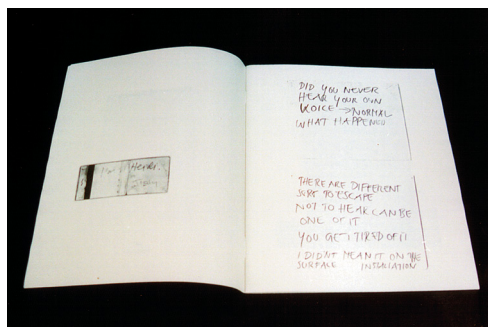 Her
DID YOU NEVER
HEAR YOUR OWN
VOICE → NORMAL
WHAT HAPPENED
THERE ARE DIFFERENT
TO ESCAPE
NOT TO HEAR CAN BE
ONE OF IT
YOU GET TIRED OF IT
I DIDN'T MEAN IT ON THE
SURFACE INSTALLATION